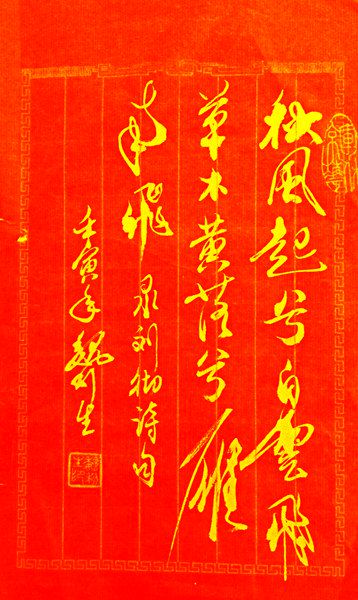 秋風起兮白雲飛
草木黄落兮雁
南飛 录刘彻诗句
壬寅年